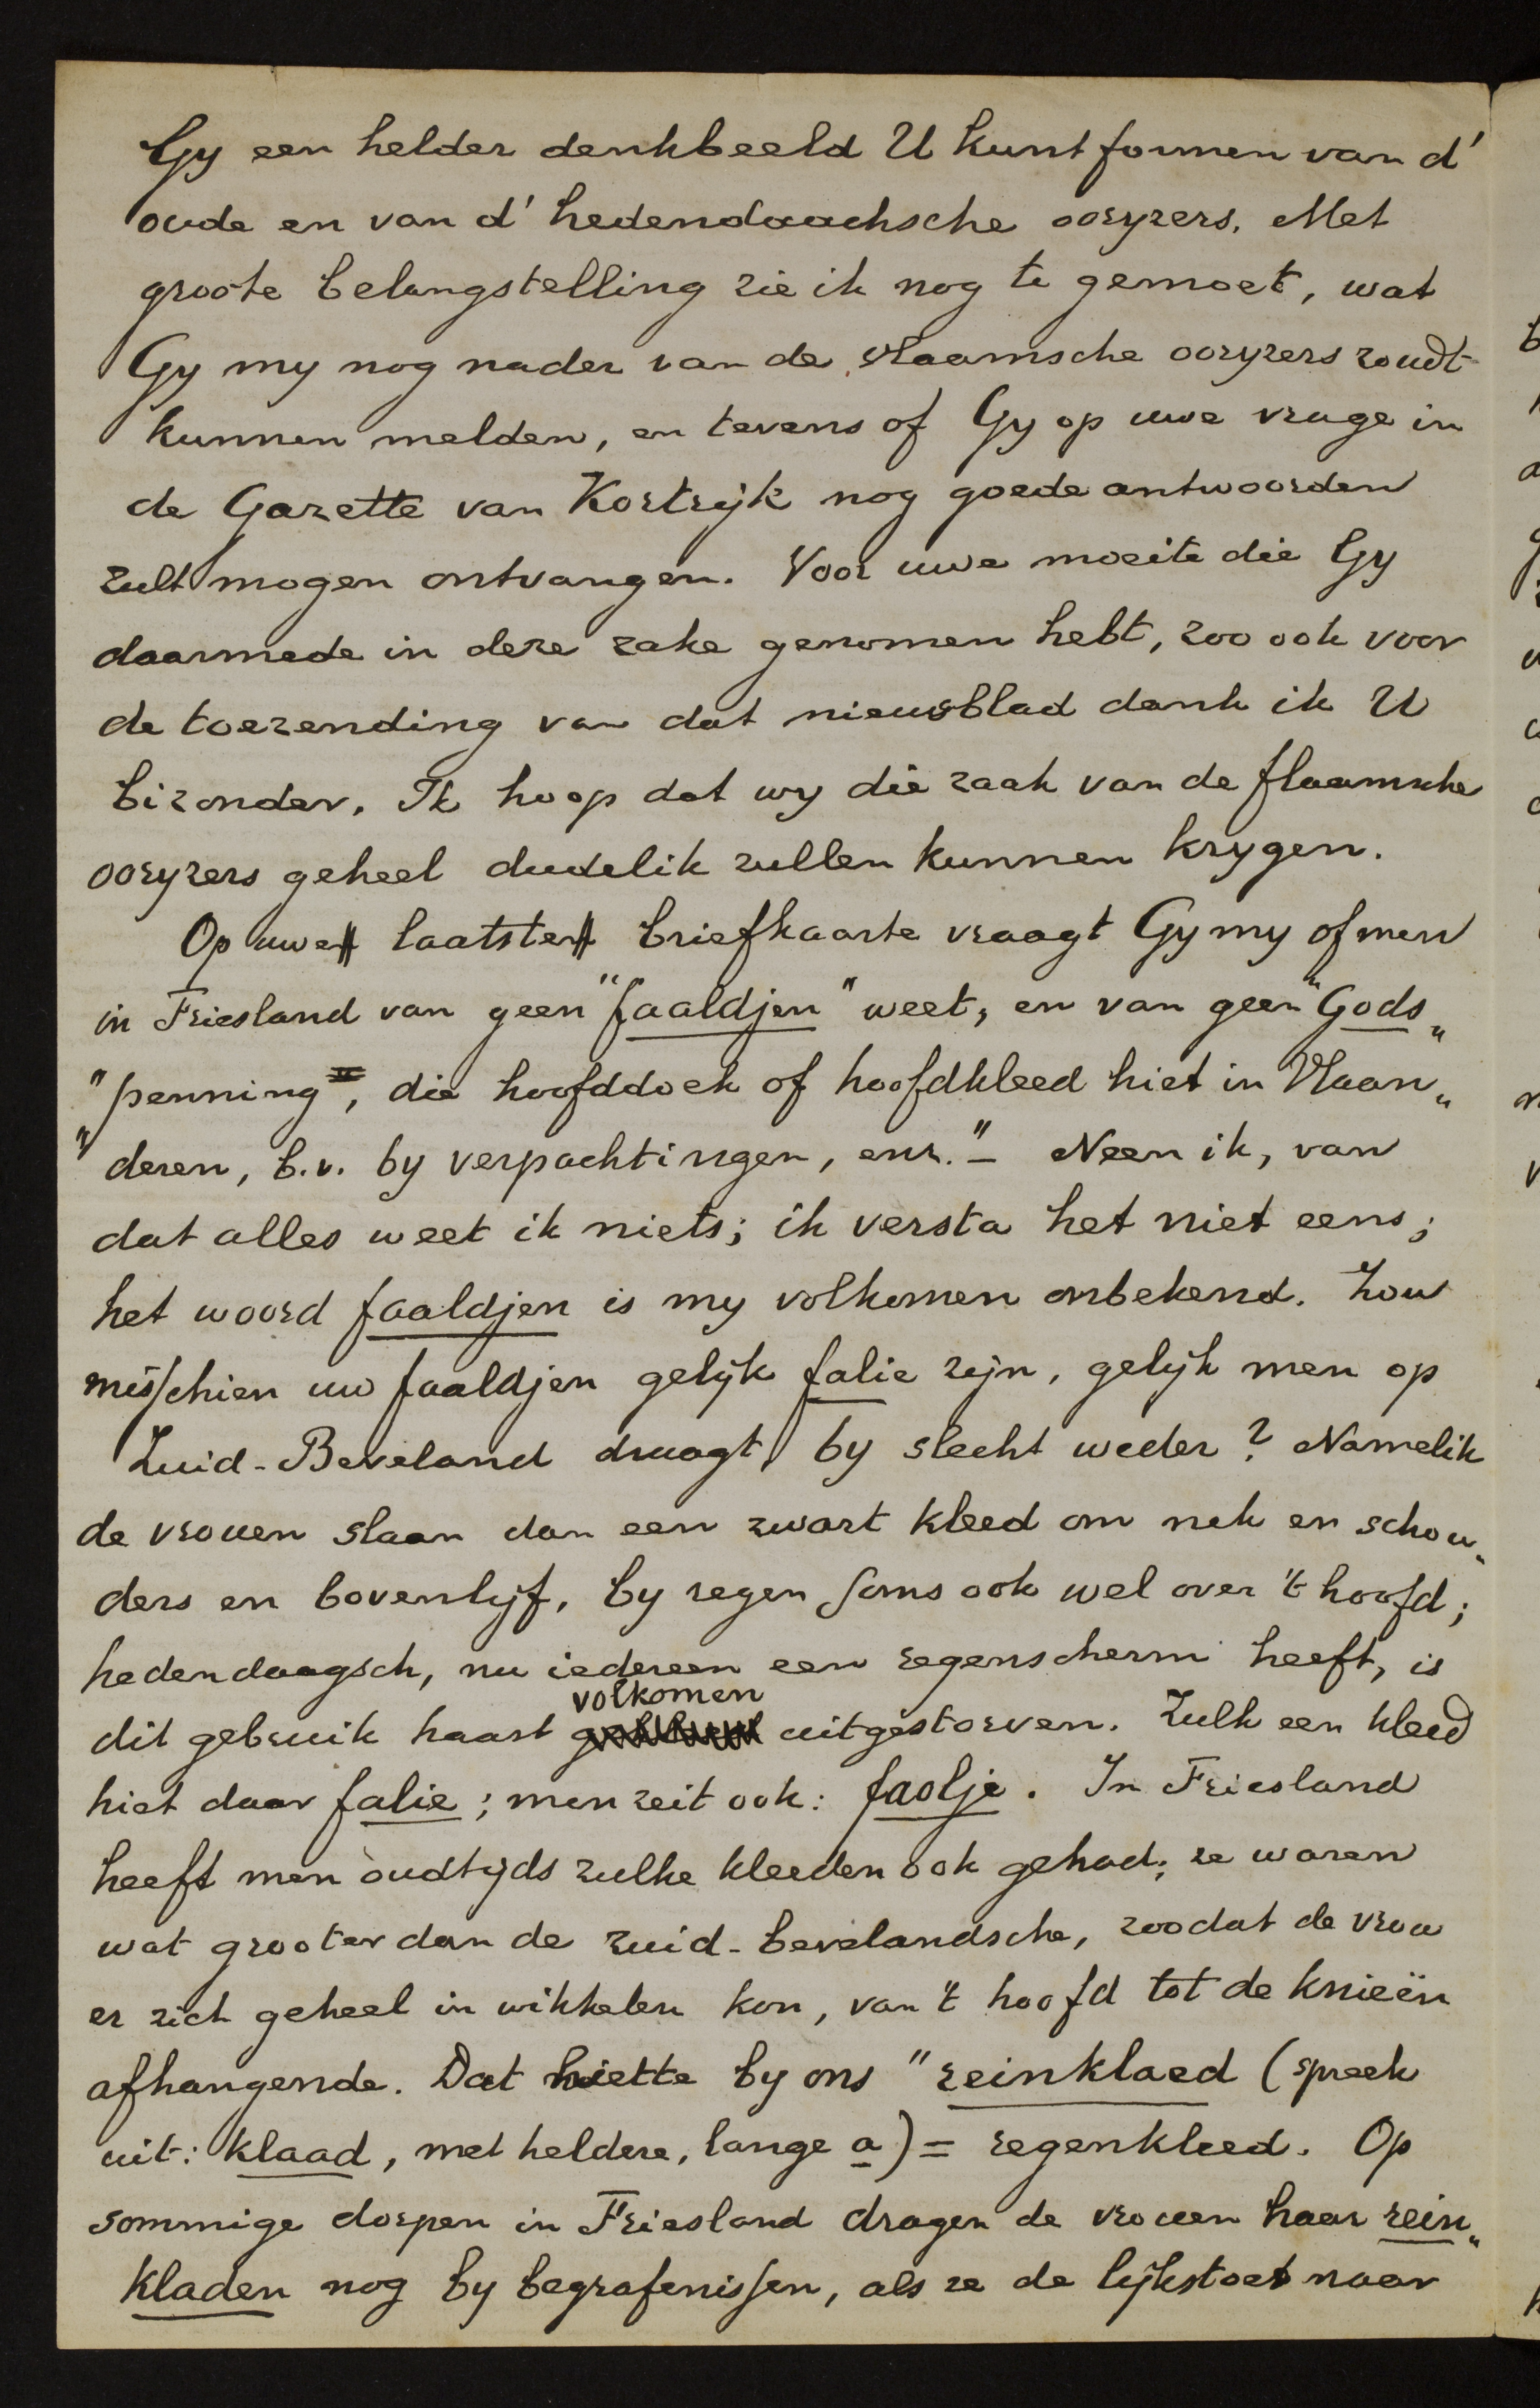 Gy een helder denkbeeld U kunt formen van d'
oude en van d' hedendaachsche ooryzers. Met
groote belangstelling zie ik nog te gemoet, wat
Gy my nog nader van de vlaamsche ooryzers zoudt
kunnen melden, en tevens of Gy op uwe vrage in
de Gazette van Kortrijk nog goede antwoorden
zult mogen ontvangen. Voor uwe moeite die Gy
daarmede in deze zake genomen hebt, zoo ook voor
de toezending van dat nieuwsblad dank ik U
bizonder. Ik hoop dat wy die zaak van de flaamsche
ooryzers geheel dudelik zullen kunnen krygen.
Op uwe laatste briefkaarte vraagt Gy my of men
in Friesland van geen "faaldjen" weet, en van geen "Gods„
"penning, die hoofddoek of hoofdkleed hiet in Vlaan„
"deren, b.v. by verpachtingen, enz." — Neen ik, van
dat alles weet ik niets; ik versta het niet eens;
het woord faaldjen is my volkomen onbekend. Zou
misschien uw faaldjen gelijk falie zijn, gelijk men op
Zuid-Beveland draagt by slecht weder? Namelik
de vrouen slaan dan een zwart kleed om nek en schou„
ders en bovenlyf, by regen soms ook wel over 't hoofd;
hedendaagsch, nu iedereen een regenscherm heeft, is
dit gebruik haast volkomen uitgestorven. Zulk een kleed
hiet daar falie; men zeit ook: faolje. In Friesland
heeft men oudtyds zulke kleeden ook gehad; ze waren
wat grooter dan de zuid-bevelandsche, zoodat de vrou
er zich geheel in wikkelen kon, van 't hoofd tot de knieën
afhangende. Dat hiette by ons "reinklaed (spreek
uit: klaad, met heldere, lange a) = regenkleed. Op
sommige dorpen in Friesland dragen de vrouen haar rein„
kladen nog by begrafenissen, als ze de lijkstoet naar